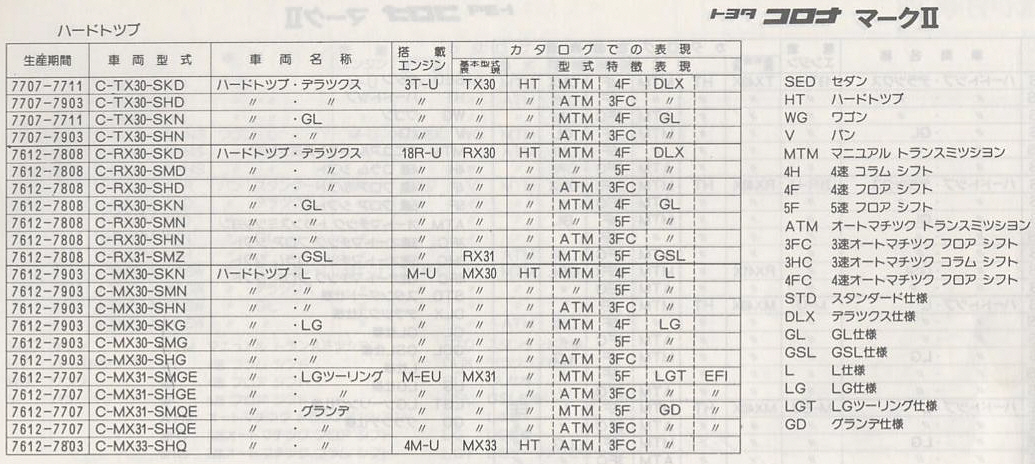 トヨタ コロナ マークⅡ
ハードトップ
生産期間 車両型式 車両名称 搭載エンジン カタログでの表現
基本型式表現 型式特徴表現
7707-7711 C-TX30-SKD ハードトップ・デラックス 3T-U TX30 HT MTM 4F DLX
7707-7903 C-TX30-SHD 〃 ・ 〃 〃 〃 〃 ATM 3FC 〃
7707-7711 C-TX30-SKN 〃 ・GL 〃 〃 〃 MTM 4F GL
7707-7903 C-TX30-SHN 〃 ・ 〃 〃 〃 〃 ATM 3FC 〃
7612-7808 C-RX30-SKD ハードトップ・デラックス 18R-U RX30 HT MTM 4F DLX
7612-7808 C-RX30-SMD 〃 ・ 〃 〃 〃 〃 〃 5F 〃
7612-7808 C-RX30-SHD 〃 ・ 〃 〃 〃 〃 ATM 3FC 〃
7612-7808 C-RX30-SKN 〃 ・GL 〃 〃 〃 MTM 4F GL
7612-7808 C-RX30-SMN 〃 ・ 〃 〃 〃 〃 〃 5F 〃
7612-7808 C-RX30-SHN 〃 ・ 〃 〃 〃 〃 ATM 3FC 〃
7612-7808 C-RX31-SMZ 〃 ・GSL 〃 RX31 〃 MTM 5F GSL
7612-7903 C-MX30-SKN ハードトップ・L M-U MX30 HT MTM 4F L
7612-7903 C-MX30-SMN 〃 ・ 〃 〃 〃 〃 〃 5F 〃
7612-7903 C-MX30-SHN 〃 ・ 〃 〃 〃 〃 ATM 3FC 〃
7612-7903 C-MX30-SKG 〃 ・LG 〃 〃 〃 MTM 4F LG
7612-7903 C-MX30-SMG 〃 ・ 〃 〃 〃 〃 〃 5F 〃
7612-7903 C-MX30-SHG 〃 ・ 〃 〃 〃 〃 ATM 3FC 〃
7612-7707 C-MX31-SMGE 〃 ・LGツーリング M-EU MX31 〃 MTM 5F LGT EFI
7612-7707 C-MX31-SHGE 〃 ・ 〃 〃 〃 〃 ATM 3FC 〃 〃
7612-7707 C-MX31-SMQE 〃 ・グランデ 〃 〃 〃 MTM 5F GD 〃
7612-7707 C-MX31-SHQE 〃 ・ 〃 〃 〃 〃 ATM 3FC 〃 〃
7612-7803 C-MX33-SHQ 〃 ・ 〃 4M-U MX33 HT ATM 3FC 〃
SED セダン
HT ハードトップ
WG ワゴン
V バン
MTM マニュアル トランスミツシヨン
4H 4速 コラム シフト
4F 4速 フロア シフト
5F 5速 フロア シフト
ATM オートマチツク トランスミツシヨン
3FC 3速オートマチツク フロア シフト
3HC 3速オートマチツク コラム シフト
4FC 4速オートマチツク フロア シフト
STD スタンダード仕様
DLX デラツクス仕様
GL GL仕様
GSL GSL仕様
L L仕様
LG LG仕様
LGT LGツーリング仕様
GD グランデ仕様